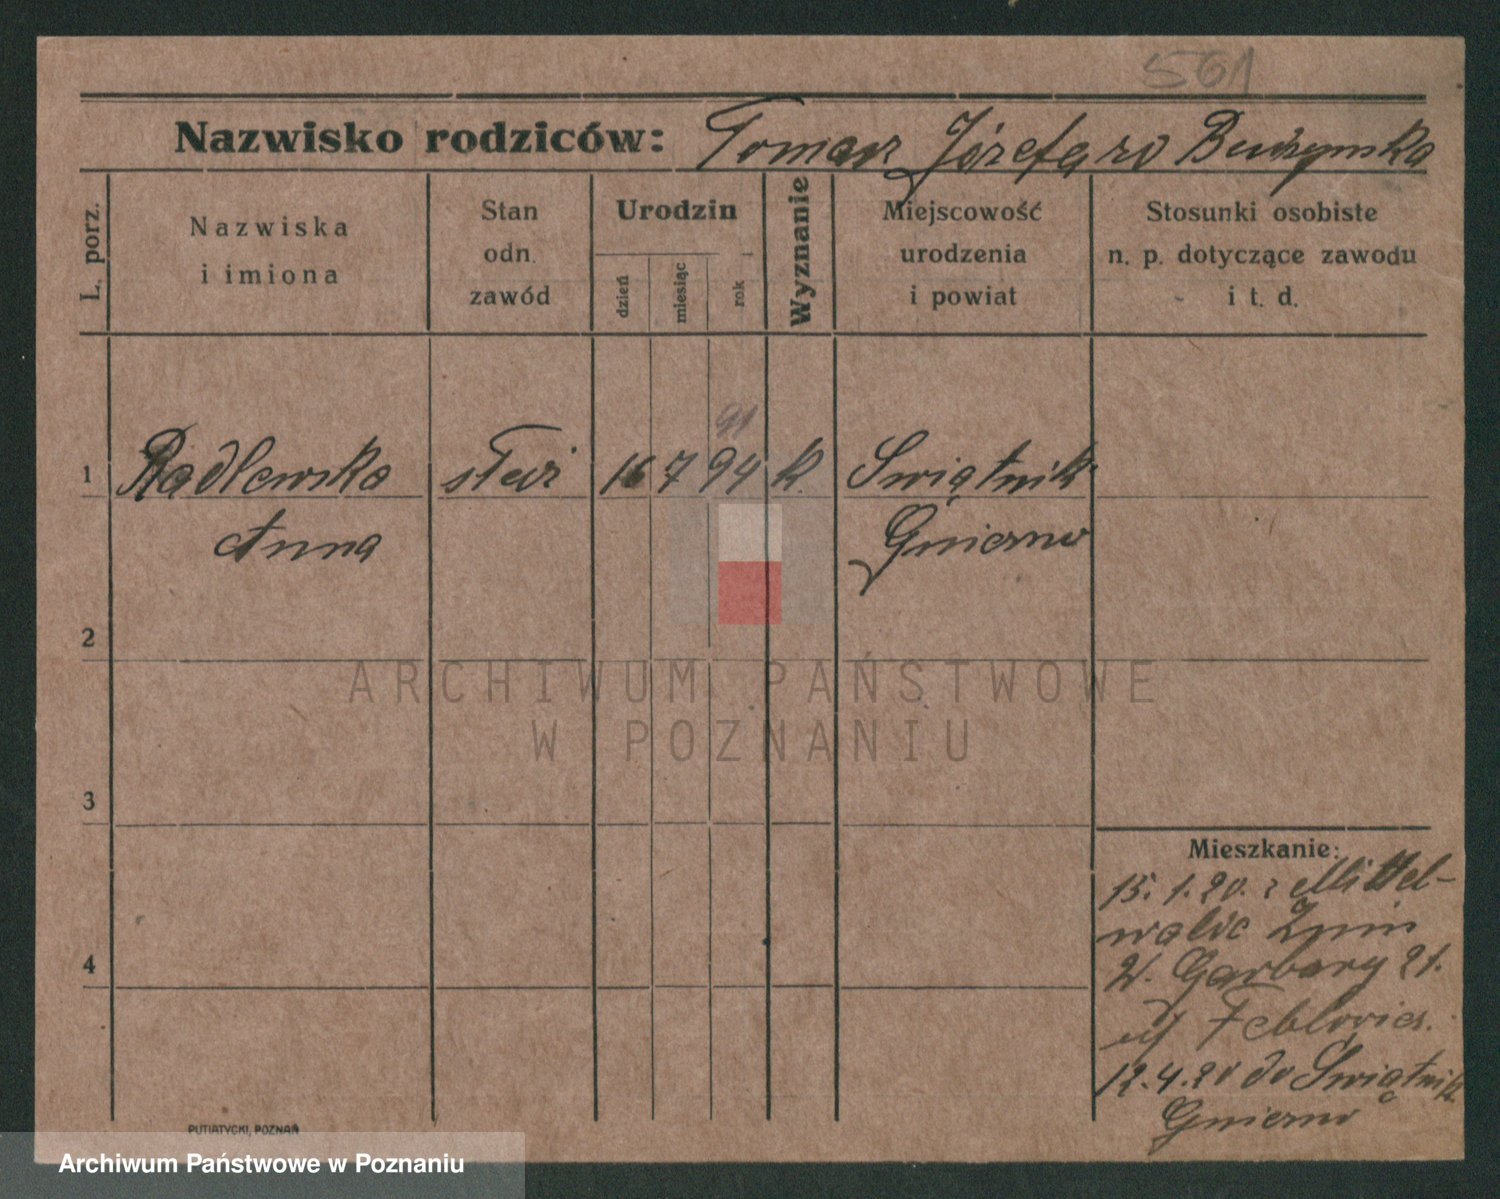 561
Nazwisko rodziców: Tomasz, Józefa zd Budzynska
L. porz.
Nazwiska
i imiona
Stan
odn.
zawód
Urodzin
dzień
miesiąc
rok
Wyznanie
Miejscowość
urodzenia
i powiat
Stosunki osobiste
n. p. dotyczące zawodu
i t. d.
91
1 Radlewska 16 7 94 k. Swiątnik
Anna Gniezno
2
ARCHIWUM PAŃSTWOWE
W POZNANIU
3
Mieszkanie:
15. 1. 20. z Mittel-
walde Znin
W. Garbary 21.
12.4.20 do Swiątnik
Gniezno
4
PUTIATYCKI, POZNAŃ
Archiwum Państwowe w Poznaniu